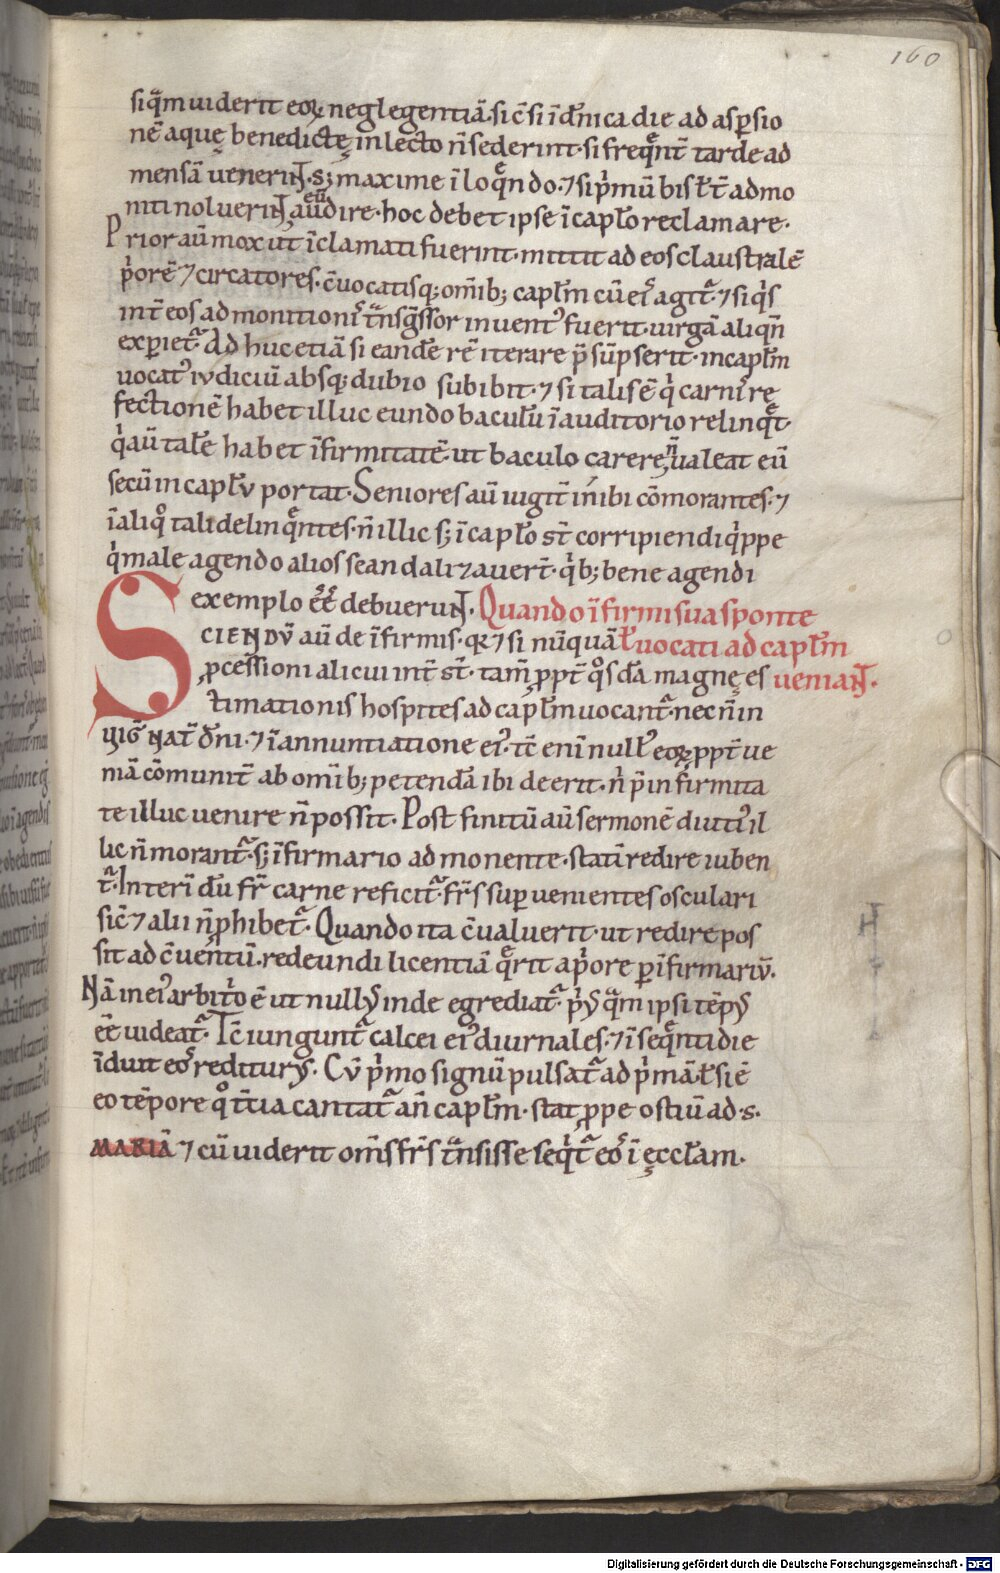 160
siq̄m uiderit eoꝝ neglegentiā. si c̄ si ī dn̄ica die ad asꝑsio
nē aquę benedictę in lecto n̄ sederint. si freq̄nt̄ tarde ad
mensā uenerint. sꝫ maxime ī loq̄ndo. ⁊ si p̄mū bis ł t̄ admo
niti noluerint eū audire. hoc debet ipse ī capło reclamare.
Prior aū mox ut īclamati fuerint. mittit ad eos claustralē
p̄orē ⁊ circatores. c̄uocatisqꝫ om̄ibꝫ capłm cū eis agit. ⁊ siq̄s
int̄ eos admonitionis t̄nsḡssor inuentꝰ fuerit. uirgā aliqn̄
exꝑiet᷑. Ad huc etiā si eandē rē iterare p̄sūpserit. in capłm
uocatꝰ iudiciū absqꝫ dubio subibit. ⁊ si talis ē q̄ carnis re
fectionē habet illuc eundo baculū ī auditorio relinq̄t.
q̄ aū talē habet īfirmitatē. ut baculo carere n̄ ualeat eū
secū in capłu portat. Seniores aū iugit̄ inibi cōmorantes. ⁊
ī aliq̊ tali delinq̄ntes. n̄ illic sꝫ ī capło st̄ corripiendi q̄ppe
q̄ male agendo alios scandalizauert̄. q̄bꝫ bene agendi
exemplo ēē debuerunt. Quando īfirmi sua sponte
SCIENDV̄ aū de īfirmis. qꝛ ⁊ si nūquā ł uocati ad capłm
ꝓcessioni alicui int̄ st̄. tam̄ ꝓpt̄ q̊sdā magnę es ueniant.
timationis hospites ad capłm uocant᷑. nec n̄ in
uiḡ nat̄ dn̄i. ⁊ ī annuntiatione eiꝰ. tc̄ eni nullꝰ eoꝝ ꝓpt̄ ue
niā cōmunit̄ ab om̄ibꝫ petendā ibi deerit. n̄ p̄ infirmita
te illuc uenire n̄ possit. Post finitū aū sermonē diutiꝰ il
lic n̄ morant᷑. sꝫ īfirmario admonente. statī redire iuben
t᷑. Interī dū fr̄ carne reficit᷑. fr̄s suꝑuenientes osculari
sic̄ ⁊ alii n̄ ꝓhibet᷑. Quando ita c̄ualuerit. ut redire pos
sit ad c̄uentū. redeundi licentiā q̄rit a p̄ore ꝑ īfirmariū.
Nā in eiꝰ arbit̄o ē ut nullus inde egrediat᷑. p̄us q̄m ipsi tēpus
ēē uideat᷑. Tc̄ iungunt᷑ calcei eiꝰ diurnales. ⁊ ī seq̄nti die
īduit eos rediturus. Cū p̄mo signū pulsat᷑ ad p̄mā. ł si ē
eo tēpore q̊ t̄tia cantat᷑ an̄ capłm. stat ꝓpe ostiū ad .s.
MARIĀ ⁊ cū uiderit om̄s fr̄s t̄nsisse seq̄t᷑ eos ī ęccłam.
Digitalisierung gefördert durch die Deutsche Forschungsgemeinschaft - DFG